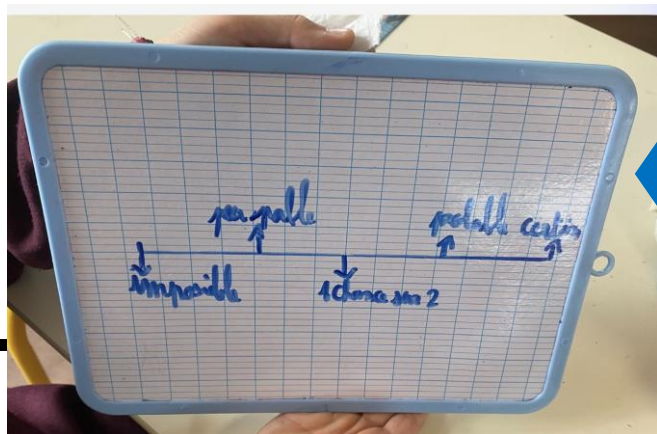 peu pable probable certin
imposible 1 chance sur 2